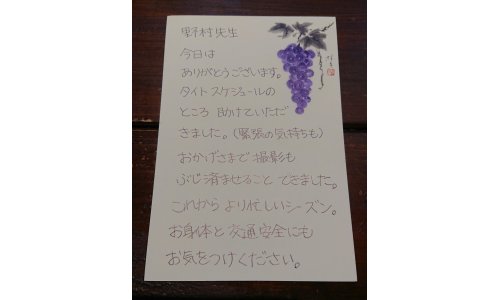 野村先生
今日は
ありがとうございます。
タイトスケジュールの
ところ 助けていただ
きました。(緊張の気持ちも)
おかげさまで撮影も
ぶじ済ませること できました。
これから より忙しいシーズン。
お身体と交通安全にも
お気をつけください。